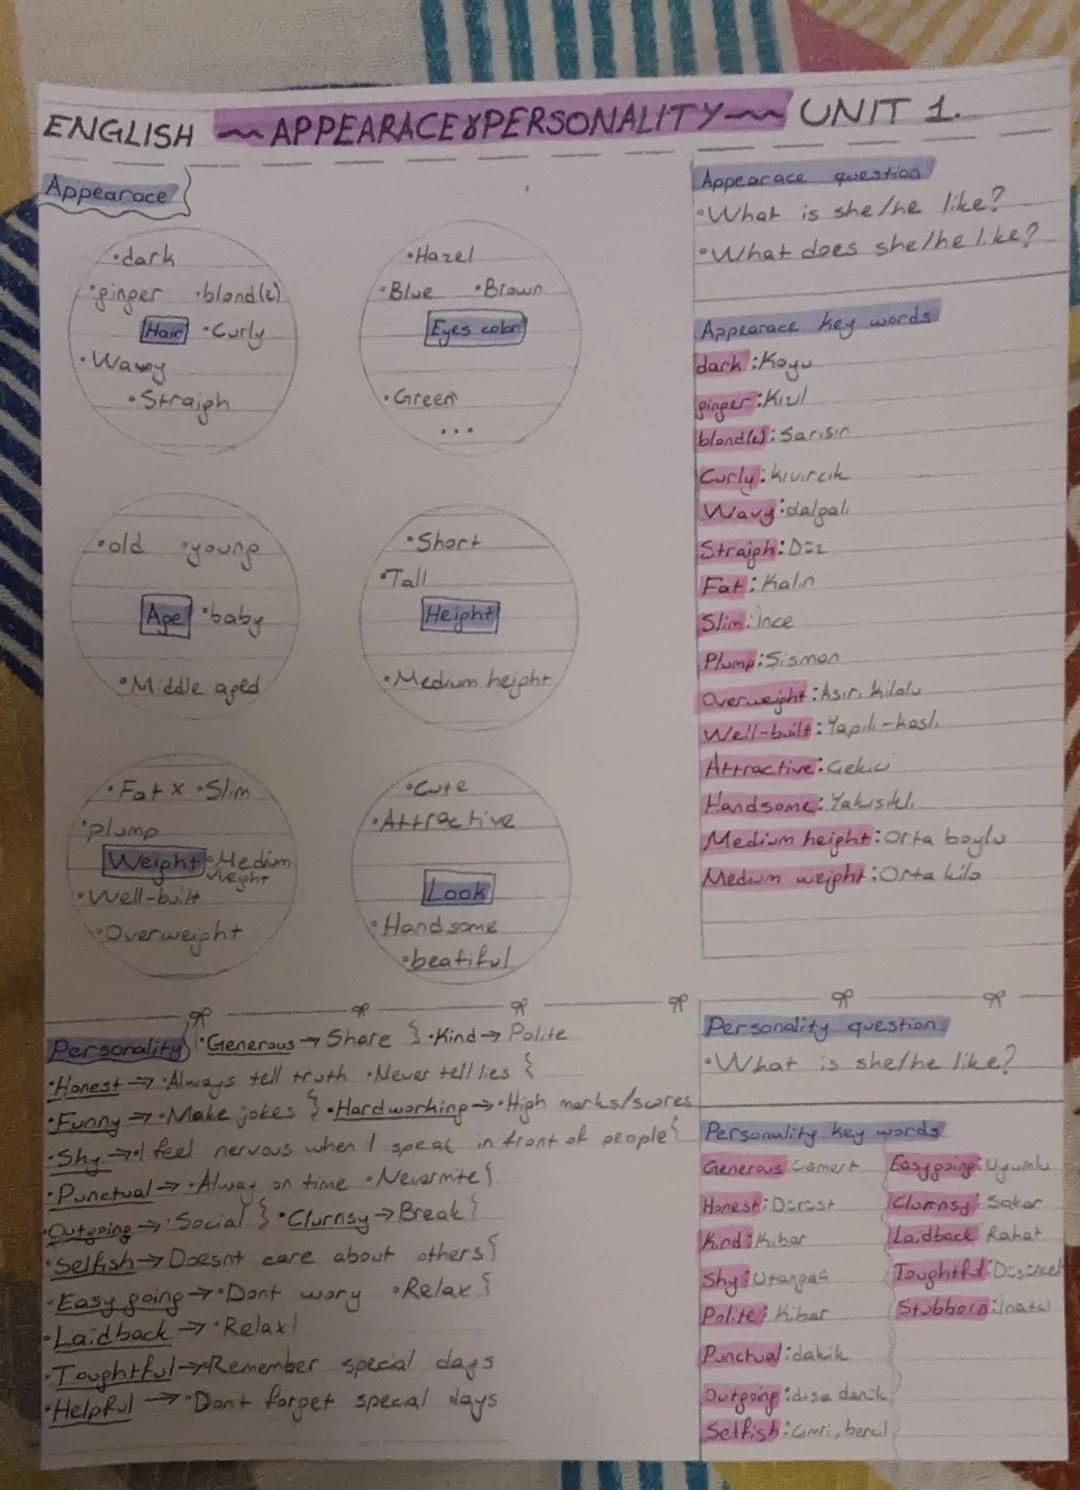 ENGLISH ~ APPEARACE & PERSONALITY ~ UNIT 1.
Appearace
•dark
•ginger •blond(e)
Hair •Curly
•Wavy
•Straigh
•Hazel
•Blue •Brown
Eyes color
•Green
...
•old •young
Age •baby
•Middle aged
•Short
•Tall
Height
•Medium height
•Fat x •Slim
•plump
Weight •Medium
weight
•Well-built
•Overweight
•Cute
•Attractive
Look
•Handsome
•beatiful
Appearace question
•What is she/he like?
•What does she/he like?
Appearace key words
dark: Koyu
ginger: Kızıl
blond(e): Sarısın
Curly: kıvırcık
Wavy: dalgalı
Straigh: Düz
Fat: Kalın
Slim: ince
Plump: Sisman
Overweight: Asırı kilolu
Well-built: Yapılı-kaslı
Attractive: Cekici
Handsome: Yakısıklı
Medium height: Orta boylu
Medium weight: Orta kilo
Personality •Generous → Share } •Kind → Polite
•Honest → •Always tell truth •Never tell lies }
•Funny → •Make jokes } •Hardworking → •High marks/scores
•Shy → •I feel nervous when I speak in front of people }
•Punctual → •Alway on time •Never mite }
•Outgoing → •Social } •Clurnsy → Break }
•Selfish → Doesnt care about others }
•Easy going → •Dont wory •Relax }
•Laidback → •Relax }
•Toughtful → •Remember special days
•Helpful → •Dont forget special days
Personality question
•What is she/he like?
Personality key words
Generous: Comert
Honest: Dürüst
Kind: Kibar
Shy: Utangaç
Polite: Kibar
Punctual: dakik
Outgoing: dısa dönük
Selfish: Cimri, bencil
Easygoing: Uyumlu
Clurnsy: Sakar
Laidback: Rahat
Toughtful: Düsünceli
Stubborn: inatcı